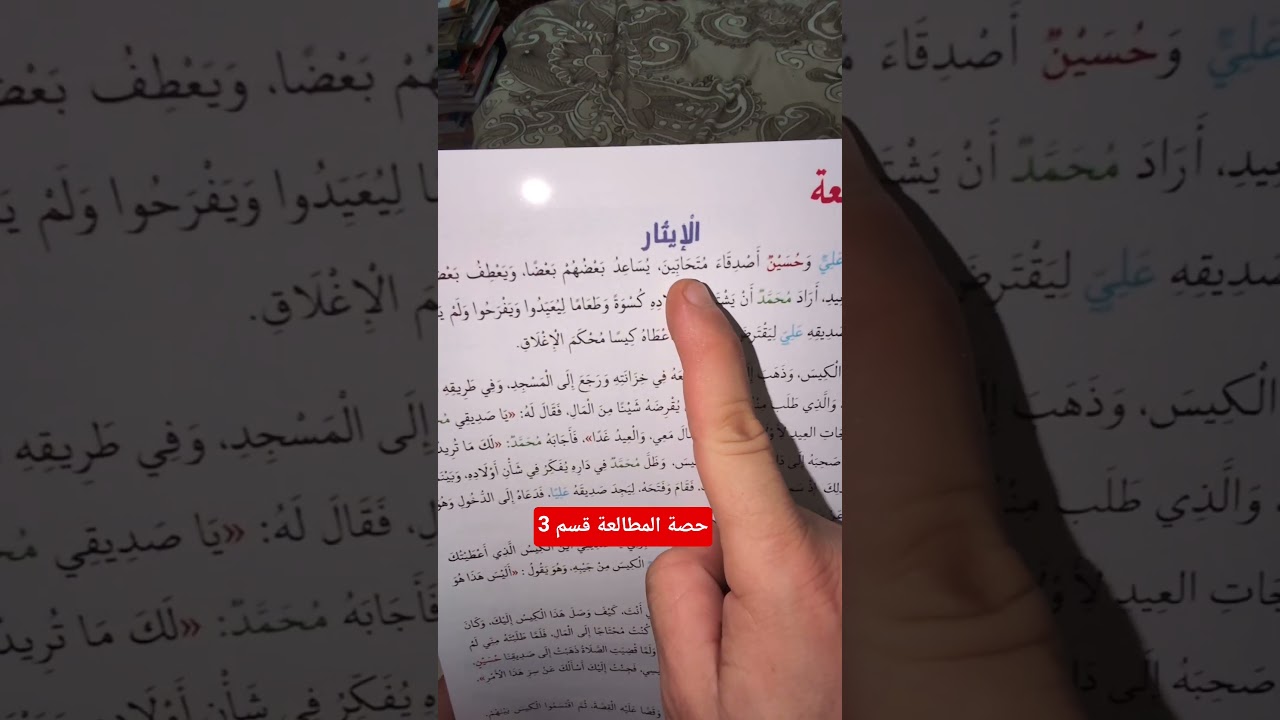 عة
الْإِيثَار
عَلِيٌّ وَحُسَيْنٌ أَصْدِقَاءَ مُتَحَابِّينَ، يُسَاعِدُ بَعْضُهُمْ بَعْضًا، وَيَعْطِفُ بَعْضُ
عِيدِ، أَرَادَ مُحَمَّدٌ أَنْ يَشْتَ لَادِهِ كُسْوَةً وَطَعَامًا لِيُعَيِّدُوا وَيَفْرَحُوا وَلَمْ يَ
صَدِيقِهِ عَلِيٍّ لِيَقْتَرِضَ عْطَاهُ كِيسًا مُحْكَمَ الْإِغْلَاقِ.
الْكِيسَ، وَذَهَبَ إِ عَهُ فِي خِزَانَتِهِ وَرَجَعَ إِلَى الْمَسْجِدِ، وَفِي طَرِيقِهِ
وَالَّذِي طَلَبَ مِنْهُ يُقْرِضَهُ شَيْئًا مِنَ الْمَالِ، فَقَالَ لَهُ: «يَا صَدِيقِي مُحَ
جَاتِ العِيدِ لِأَوْلَا مَالَ مَعِي، وَالْعِيدُ غَدًا». فَأَجَابَهُ مُحَمَّدٌ: «لَكَ مَا تُرِيدُ
صَحِبَهُ إِلَى دَا كِيسَ، وَظَلَّ مُحَمَّدٌ فِي دَارِهِ يُفَكِّرُ فِي شَأْنِ أَوْلَادِهِ، وَبَيْنَمَ
ذَلِكَ إِذْ سَمِ فَقَامَ وَفَتَحَهُ، لِيَجِدَ صَدِيقَهُ عَلِيًّا، فَدَعَاهُ إِلَى الدُّخُولِ وَهُوَ
حصة المطالعة قسم 3
أَيْنَ الْكِيسُ الَّذِي أَعْطَيْتُكَ
الْكِيسَ مِنْ جَيْبِهِ، وَهُوَ يَقُولُ: «أَلَيْسَ هَذَا هُوَ
أَنْتَ، كَيْفَ وَصَلَ هَذَا الْكِيسُ إِلَيْكَ، وَكَانَ
كُنْتُ مُحْتَاجًا إِلَى الْمَالِ، فَلَمَّا طَلَبْتَهُ مِنِّي لَمْ
وَلَمَّا قُضِيَتِ الصَّلَاةُ ذَهَبْتُ إِلَى صَدِيقِنَا حُسَيْنٍ
فَجِئْتُ إِلَيْكَ أَسْأَلُكَ عَنْ سِرِّ هَذَا الْأَمْرِ».
وَقَصَّا عَلَيْهِ الْقِصَّةَ، ثُمَّ اقْتَسَمُوا الْكِيسَ بَيْنَهُمْ.